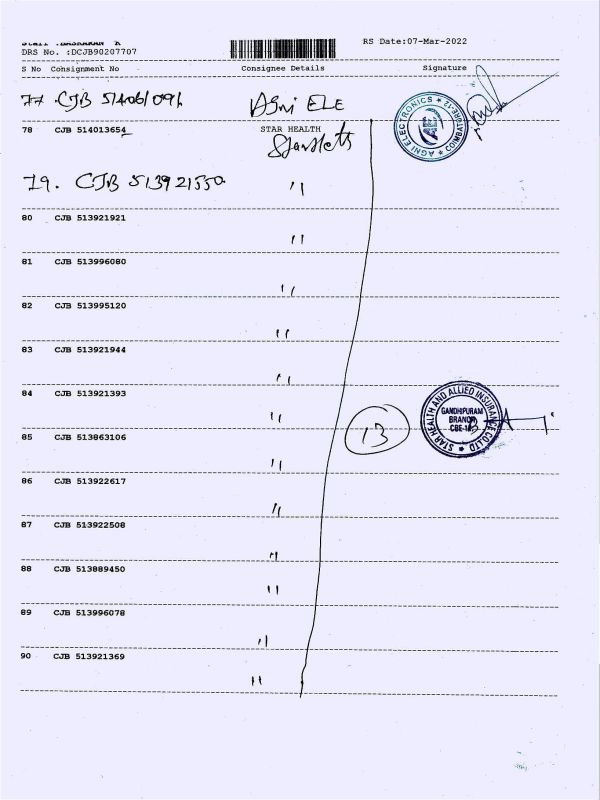 Staff :BASKARAN K
DRS No. :DCJB90207707
RS Date:07-Mar-2022
S No Consignment No Consignee Details Signature
77. CJB 514061091 Agni ELE
AGNI ELECTRONICS * COIMBATORE-12 *
AE
78 CJB 514013654 STAR HEALTH
79. CJB 513921550 "
80 CJB 513921921 "
81 CJB 513996080 "
82 CJB 513995120 "
83 CJB 513921944 "
84 CJB 513921393 "
STAR HEALTH AND ALLIED INSURANCE CO LTD *
GANDHIPURAM
BRANCH
CBE-12
13
85 CJB 513863106 "
86 CJB 513922617 "
87 CJB 513922508 "
88 CJB 513889450 "
89 CJB 513996078 "
90 CJB 513921369 "